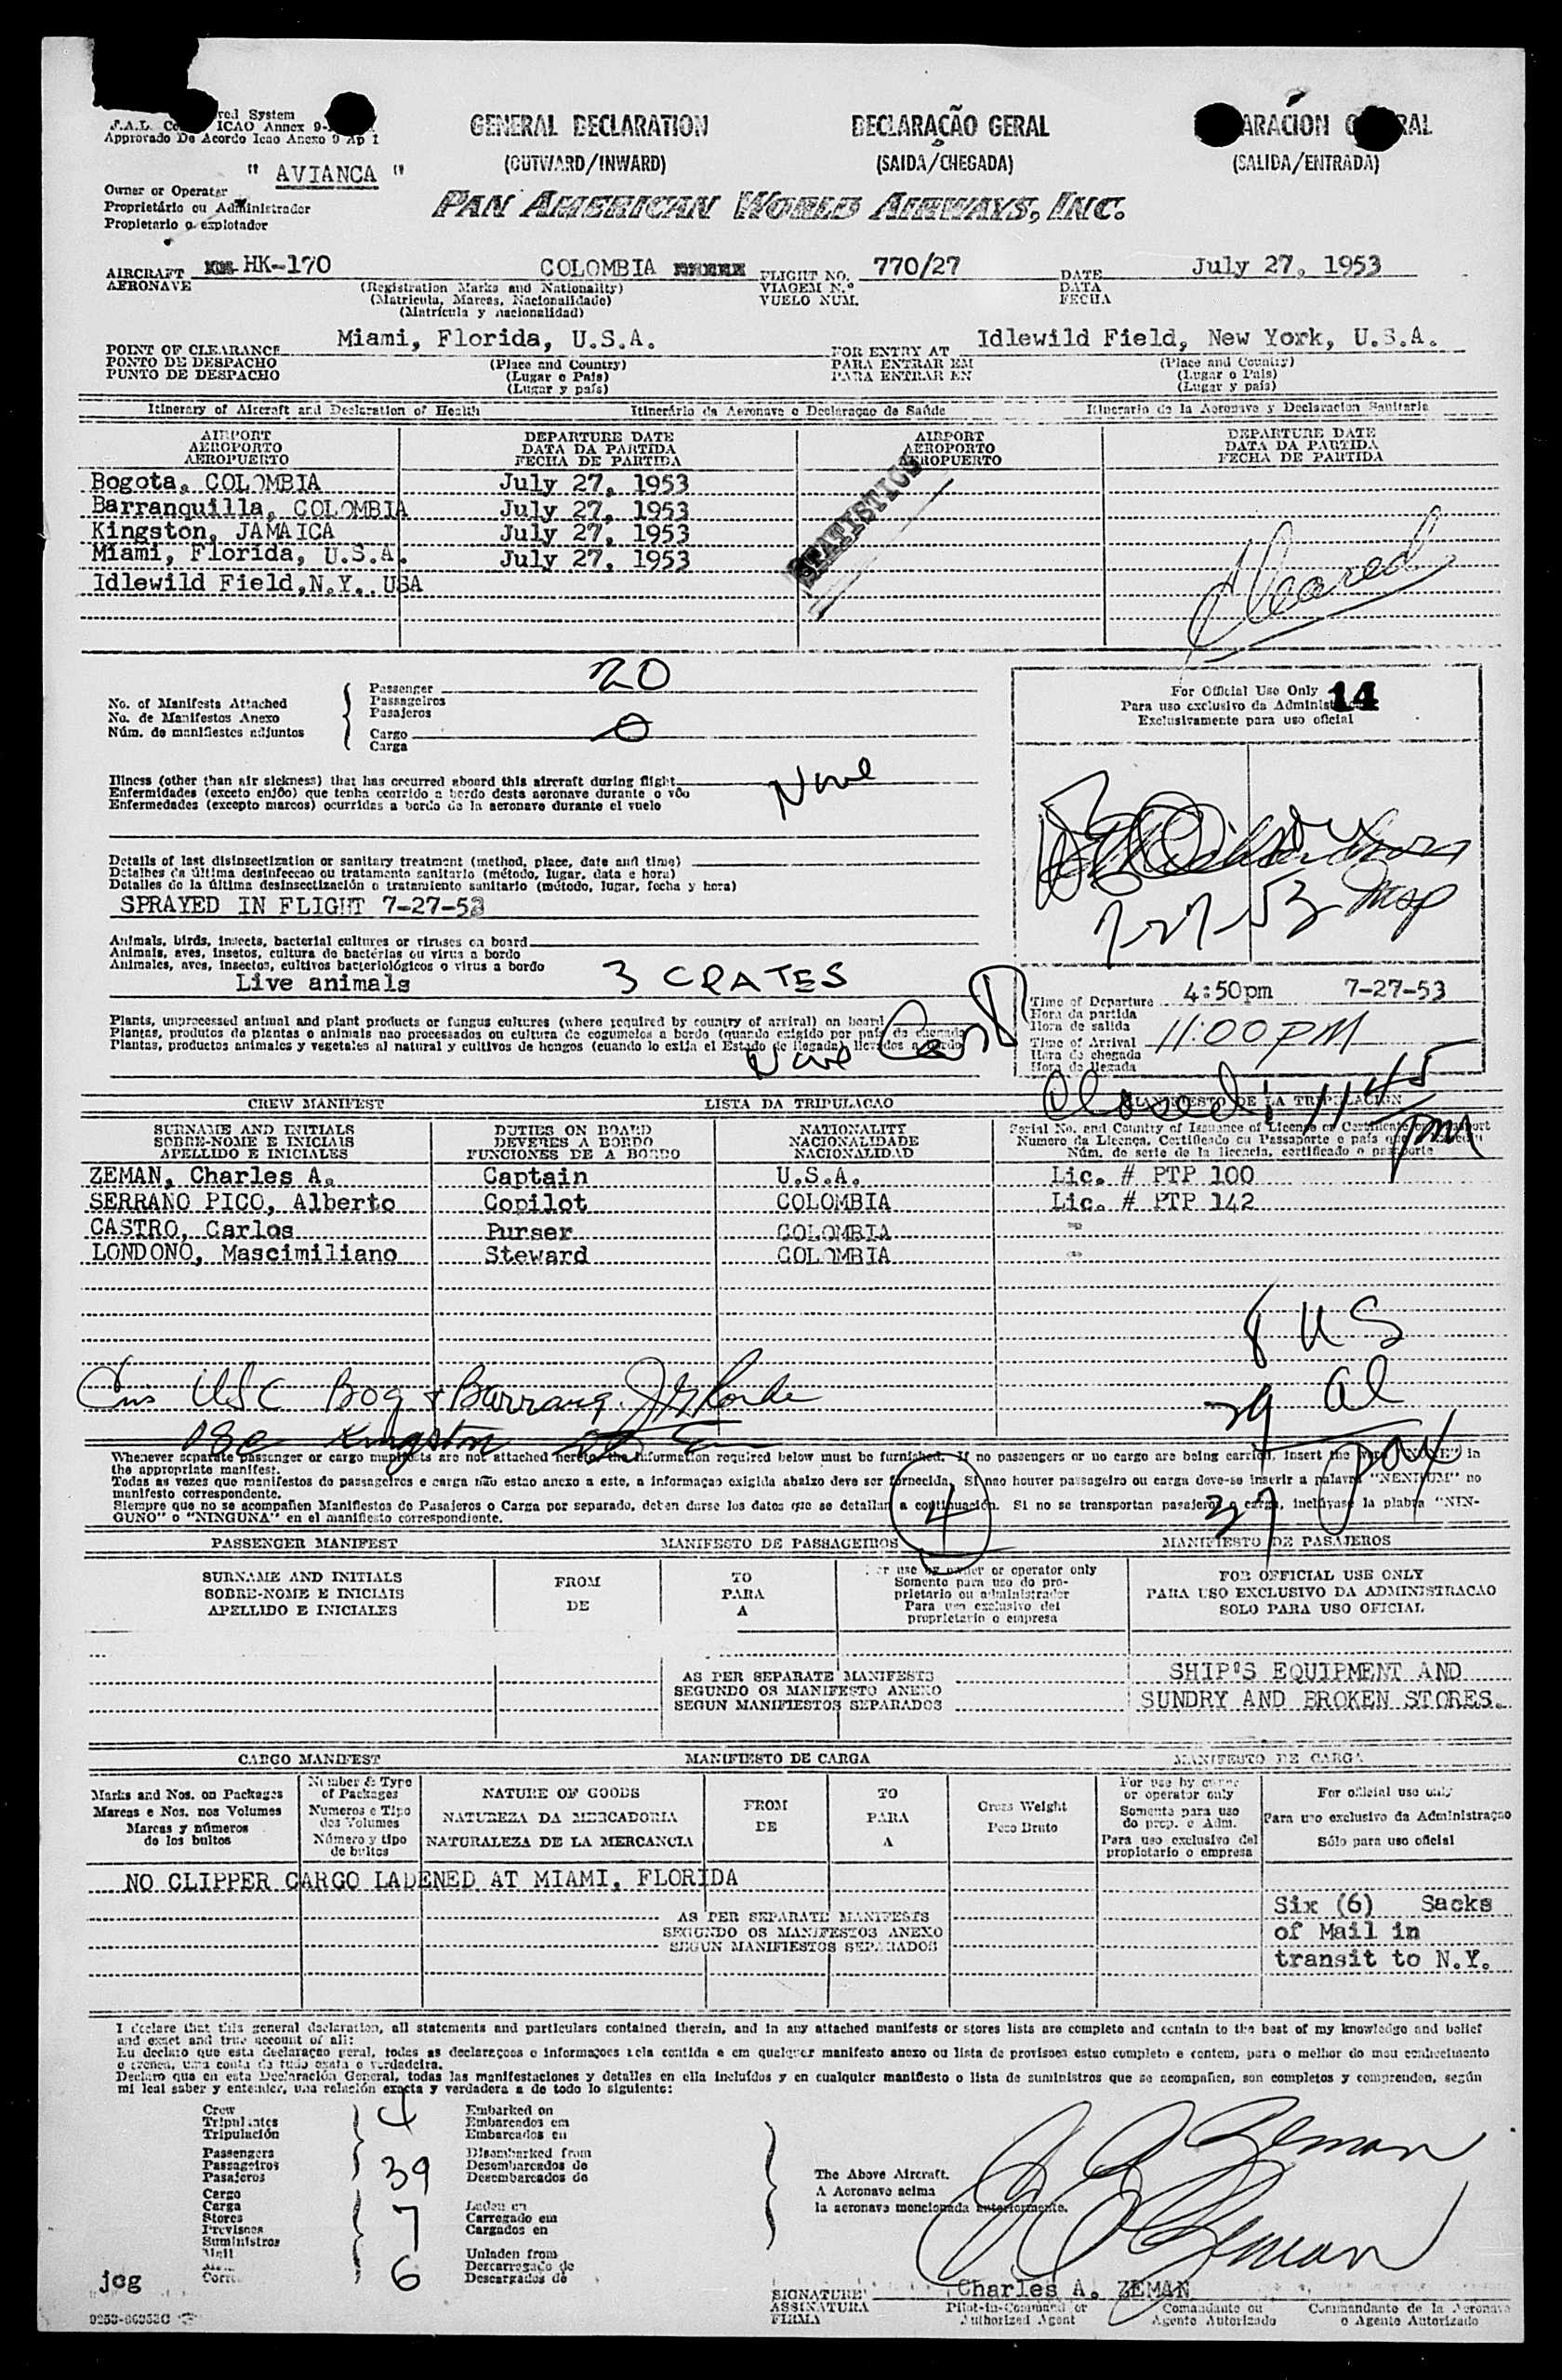 red System
F.A.L. ICAO Annex 9-
Approvado De Acordo Icao Anexo 9 Ap 1
GENERAL DECLARATION
(OUTWARD/INWARD)
DECLARAÇÃO GERAL
(SAIDA/CHEGADA)
ARACION RAL
(SALIDA/ENTRADA)
" AVIANCA "
Owner or Operator
Proprietário ou Administrador
Propietario o explotador
PAN AMERICAN WORLD AIRWAYS, INC.
AIRCRAFT HK-170 COLOMBIA FLIGHT NO. 770/27 DATE July 27, 1953
AERONAVE (Registration Marks and Nationality) VIAGEM N.º DATA
(Matricula, Marcas, Nacionalidade) VUELO NUM. FECHA
(Matrícula y nacionalidad)
POINT OF CLEARANCE Miami, Florida, U.S.A. FOR ENTRY AT Idlewild Field, New York, U.S.A.
PONTO DE DESPACHO (Place and Country) PARA ENTRAR EM (Place and Country)
PUNTO DE DESPACHO (Lugar e País) PARA ENTRAR EN (Lugar o País)
(Lugar y país) (Lugar y país)
Itinerary of Aircraft and Declaration of Health Itinerário da Aeronave e Declaraçao de Saúde Itinerario de la Aeronave y Declaracion Sanitaria
AIRPORT DEPARTURE DATE AIRPORT DEPARTURE DATE
AEROPORTO DATA DA PARTIDA AEROPORTO DATA DA PARTIDA
AEROPUERTO FECHA DE PARTIDA AEROPUERTO FECHA DE PARTIDA
Bogota, COLOMBIA July 27, 1953
Barranquilla, COLOMBIA July 27, 1953
Kingston, JAMAICA July 27, 1953
Miami, Florida, U.S.A. July 27, 1953
Idlewild Field, N.Y. USA
STATISTICS
Cleared
No. of Manifests Attached
No. de Manifestos Anexo
Núm. de manifiestos adjuntos
Passenger 20
Passageiros
Pasajeros
Cargo 0
Carga
For Official Use Only 14
Para uso exclusivo da Administ
Exclusivamente para uso oficial
Illness (other than air sickness) that has occurred aboard this aircraft during flight None
Enfermidades (exceto enjôo) que tenha ocorrido a bordo desta aeronave durante o vôo
Enfermedades (excepto mareos) ocurridas a bordo de la aeronave durante el vuelo
Details of last disinsectization or sanitary treatment (method, place, date and time)
Detalhes da última desinfeccao ou tratamento sanitario (método, lugar, data e hora)
Detalles de la última desinsectización o tratamiento sanitario (método, lugar, fecha y hora)
SPRAYED IN FLIGHT 7-27-53
7-27-53
Animals, birds, insects, bacterial cultures or viruses on board
Animais, aves, insetos, cultura de bactérias ou virus a bordo
Animales, aves, insectos, cultivos bacteriológicos o virus a bordo
Live animals 3 CRATES
Time of Departure 4:50pm 7-27-53
Hora da partida
Hora de salida
Time of Arrival 11:00 PM
Hora da chegada
Hora de llegada
Plants, unprocessed animal and plant products or fungus cultures (where required by country of arrival) on board
Plantas, produtos de plantas e animais nao processados ou cultura de cogumelos a bordo (quando exigido por país de chegada)
Plantas, productos animales y vegetales al natural y cultivos de hongos (cuando lo exija el Estado de llegada) llevados a bordo
None
Closed: 11 45 pm
CREW MANIFEST LISTA DA TRIPULACAO MANIFIESTO DE LA TRIPULACION
SURNAME AND INITIALS DUTIES ON BOARD NATIONALITY Serial No. and Country of Issuance of License or Certificate or Passport
SOBRE-NOME E INICIAIS DEVERES A BORDO NACIONALIDADE Numero da Licença, Certificado ou Passaporte e país
APELLIDO E INICIALES FUNCIONES DE A BORDO NACIONALIDAD Núm. de serie de la licencia, certificado o pasaporte
ZEMAN, Charles A. Captain U.S.A. Lic. # PTP 100
SERRANO PICO, Alberto Copilot COLOMBIA Lic. # PTP 142
CASTRO, Carlos Purser COLOMBIA -
LONDONO, Mascimiliano Steward COLOMBIA -
8 US
29 al
37 pax
USC Bog + Barranq.
Kingston
Whenever separate passenger or cargo manifests are not attached hereto, the information required below must be furnished. If no passengers or no cargo are being carried, insert the word "NONE" in
the appropriate manifest.
Todas as vezes que manifestos do passageiros e carga não estao anexo a este, a informaçao exigida abaixo deve ser fornecida. Si nao houver passageiro ou carga deve-se inserir a palavra "NENHUM" no
manifesto correspondente.
Siempre que no se acompañen Manifiestos de Pasajeros o Carga por separado, deben darse los datos que se detallan a continuación. Si no se transportan pasajeros o carga, inclúyase la plabra "NIN-
GUNO" o "NINGUNA" en el manifiesto correspondiente.
4
PASSENGER MANIFEST MANIFESTO DE PASSAGEIROS MANIFIESTO DE PASAJEROS
SURNAME AND INITIALS FROM TO For use by owner or operator only FOR OFFICIAL USE ONLY
SOBRE-NOME E INICIAIS DE PARA Somente para uso do pro- PARA USO EXCLUSIVO DA ADMINISTRACAO
APELLIDO E INICIALES A prietario ou administrador SOLO PARA USO OFICIAL
Para uso exclusivo del
proprietario o empresa
AS PER SEPARATE MANIFESTS SHIP'S EQUIPMENT AND
SEGUNDO OS MANIFESTO ANEXO
SEGUN MANIFIESTOS SEPARADOS SUNDRY AND BROKEN STORES.
CARGO MANIFEST MANIFIESTO DE CARGA MANIFESTO DE CARGA
Marks and Nos. on Packages Number & Type of Packages NATURE OF GOODS FROM TO Gross Weight For use by owner or operator only For official use only
Marcas e Nos. nos Volumes Numeros e Tipo dos Volumes NATUREZA DA MERCADORIA DE PARA Peso Bruto Somente para uso do prop. e Adm. Para uso exclusivo da Administraçao
Marcas y números de los bultos Número y tipo de bultos NATURALEZA DE LA MERCANCIA A Para uso exclusivo del propietario o empresa Sólo para uso oficial
NO CLIPPER CARGO LADENED AT MIAMI, FLORIDA
AS PER SEPARATE MANIFESTS
SEGUNDO OS MANIFESTOS ANEXO
SEGUN MANIFIESTOS SEPARADOS
Six (6) Sacks
of Mail in
transit to N.Y.
I declare that this general declaration, all statements and particulars contained therein, and in any attached manifests or stores lists are complete and contain to the best of my knowledge and belief
and exact and true account of all:
Eu declaro que esta declaraçao geral, todas as declaraçoes e informaçoes nela contida e em qualquer manifesto anexo ou lista de provisoes estao completo e contem, para o melhor do meu conhecimento
e crença, uma conta de tudo exata e verdadeira.
Declaro que en esta Declaración General, todas las manifestaciones y detalles en ella incluídos y en cualquier manifiesto o lista de suministros que se acompañen, son completos y comprenden, según
mi leal saber y entender, una relación exacta y verdadera a de todo lo siguiente:
Crew 4 Embarked on
Tripulantes Embarcados em
Tripulación Embarcados en
Passengers 39 Disembarked from
Passageiros Desembarcados de
Pasajeros Desembarcados de
Cargo
Carga 7 Laden on
Stores Carregado em
Previsoes Cargados en
Suministros
Mail 6 Unladen from
Descarregado de
Descargados de
The Above Aircraft.
A Aeronave acima
la aeronave mencionada anteriormente.
C A Zeman
C A Zeman
jcg
Charles A. ZEMAN
SIGNATURE Pilot-in-Command or Comandante ou Commandante de la Aeronave
ASSINATURA Authorized Agent Agente Autorizado o Agente Autorizado
FIRMA